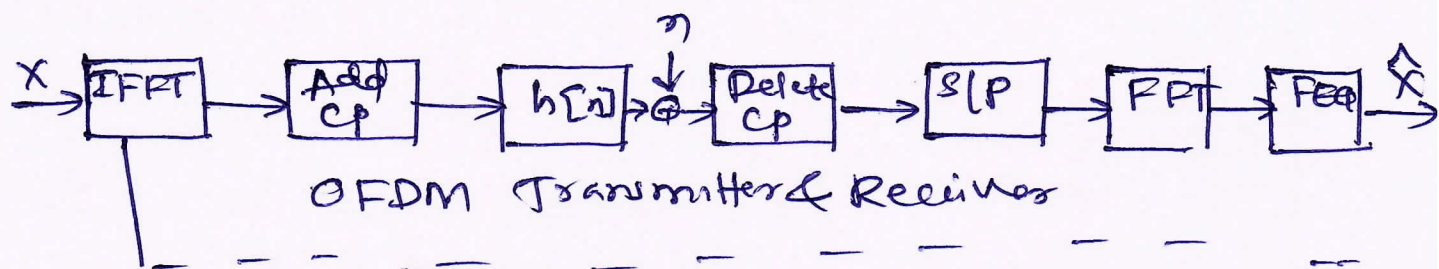 n
X IFFT Add CP h[n] Delete CP S/P FFT FEQ X̂
OFDM Transmitter & Receiver